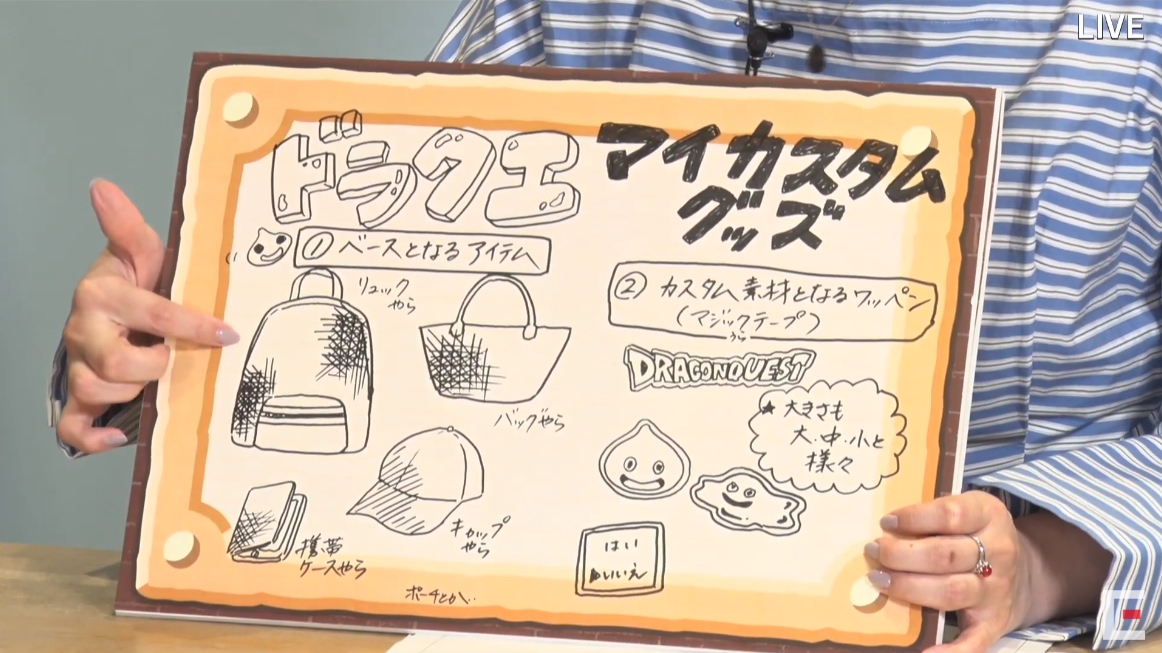 LIVE
ドラクエ
マイカスタム
グッズ
① ベースとなるアイテム
リュック
やら
バッグやら
キャップ
やら
携帯
ケースやら
ポーチとか..
② カスタム素材となるワッペン
(マジックテープ)
うら
DRAGON QUEST
★ 大きさも
大・中・小と
様々
はい
▶いいえ